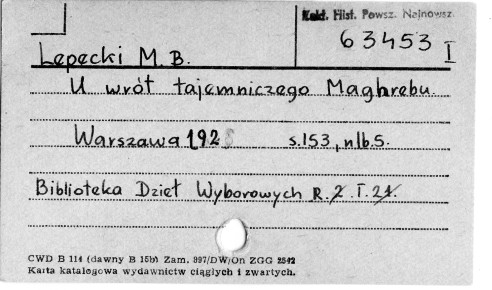 Zakł. Hist. Powsz. Najnowsz.
63453 I
Lepecki M. B.
U wrót tajemniczego Maghrebu.
Warszawa 192 s. 153, nlb. 5.
Biblioteka Dzieł Wyborowych R. 2. I. 21.
CWD B 114 (dawny B 15b) Zam. 897/DW/On ZGG 2542
Karta katalogowa wydawnictw ciągłych i zwartych.